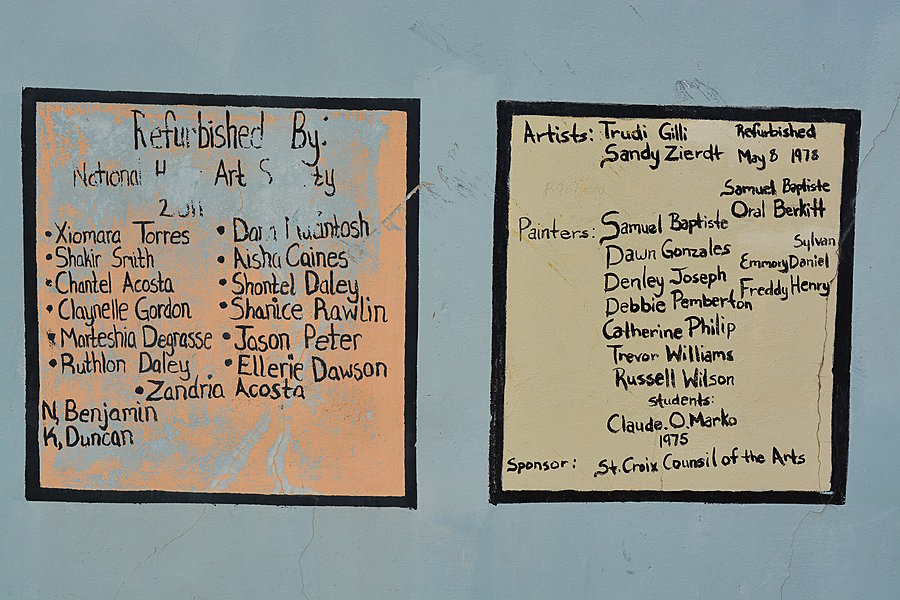 Refurbished By:
National Art
2011
• Xiomara Torres
• Shakir Smith
• Chantel Acosta
• Claynelle Gordon
• Marteshia Degrasse
• Ruthlon Daley
• Aisha Caines
• Shontel Daley
• Shanice Rawlin
• Jason Peter
• Ellerie Dawson
• Zandria Acosta
N, Benjamin
K, Duncan
Artists: Trudi Gilli
Sandy Zierdt
Refurbished
May 8 1978
Samuel Baptiste
Oral Berkitt
Sylvan
Emmory Daniel
Freddy Henry
Painters: Samuel Baptiste
Dawn Gonzales
Denley Joseph
Debbie Pemberton
Catherine Philip
Trevor Williams
Russell Wilson
Students:
Claude.O.Marko
1975
Sponsor: St.Croix Counsil of the Arts